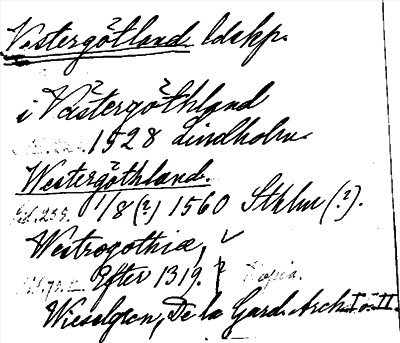 Västergötland ldskp.
i Västergöthland
1528 Lindholm.
Westergöthland.
1/8 (?) 1560 Sthlm (?).
Westrogothia,
Efter 1319. Kopia.
Wieselgren, De la Gard. Arch. I o. II.